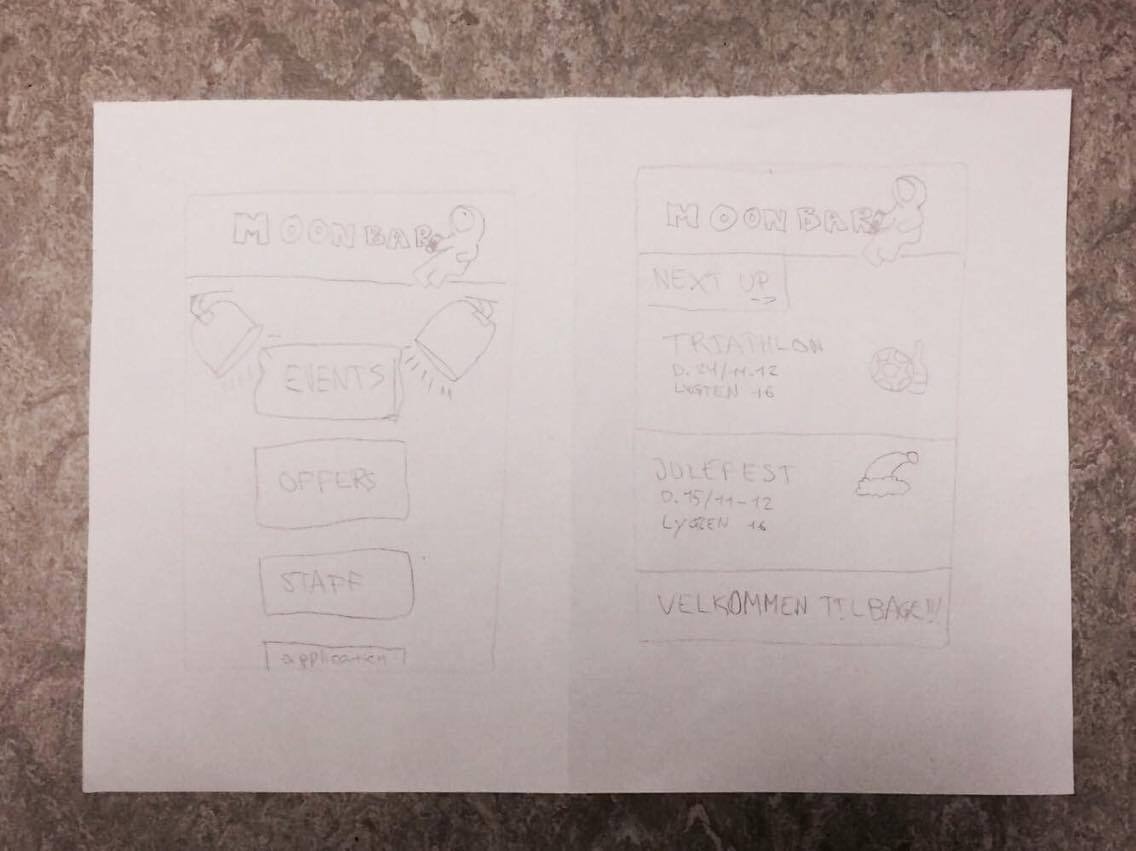 MOON BAR
EVENTS
OFFERS
STAFF
application
MOON BAR
NEXT UP
->
TRIATHLON
D. 24/11-12
LYGTEN 16
JULEFEST
D. 15/11-12
LYGTEN 16
VELKOMMEN TILBAGE!!!